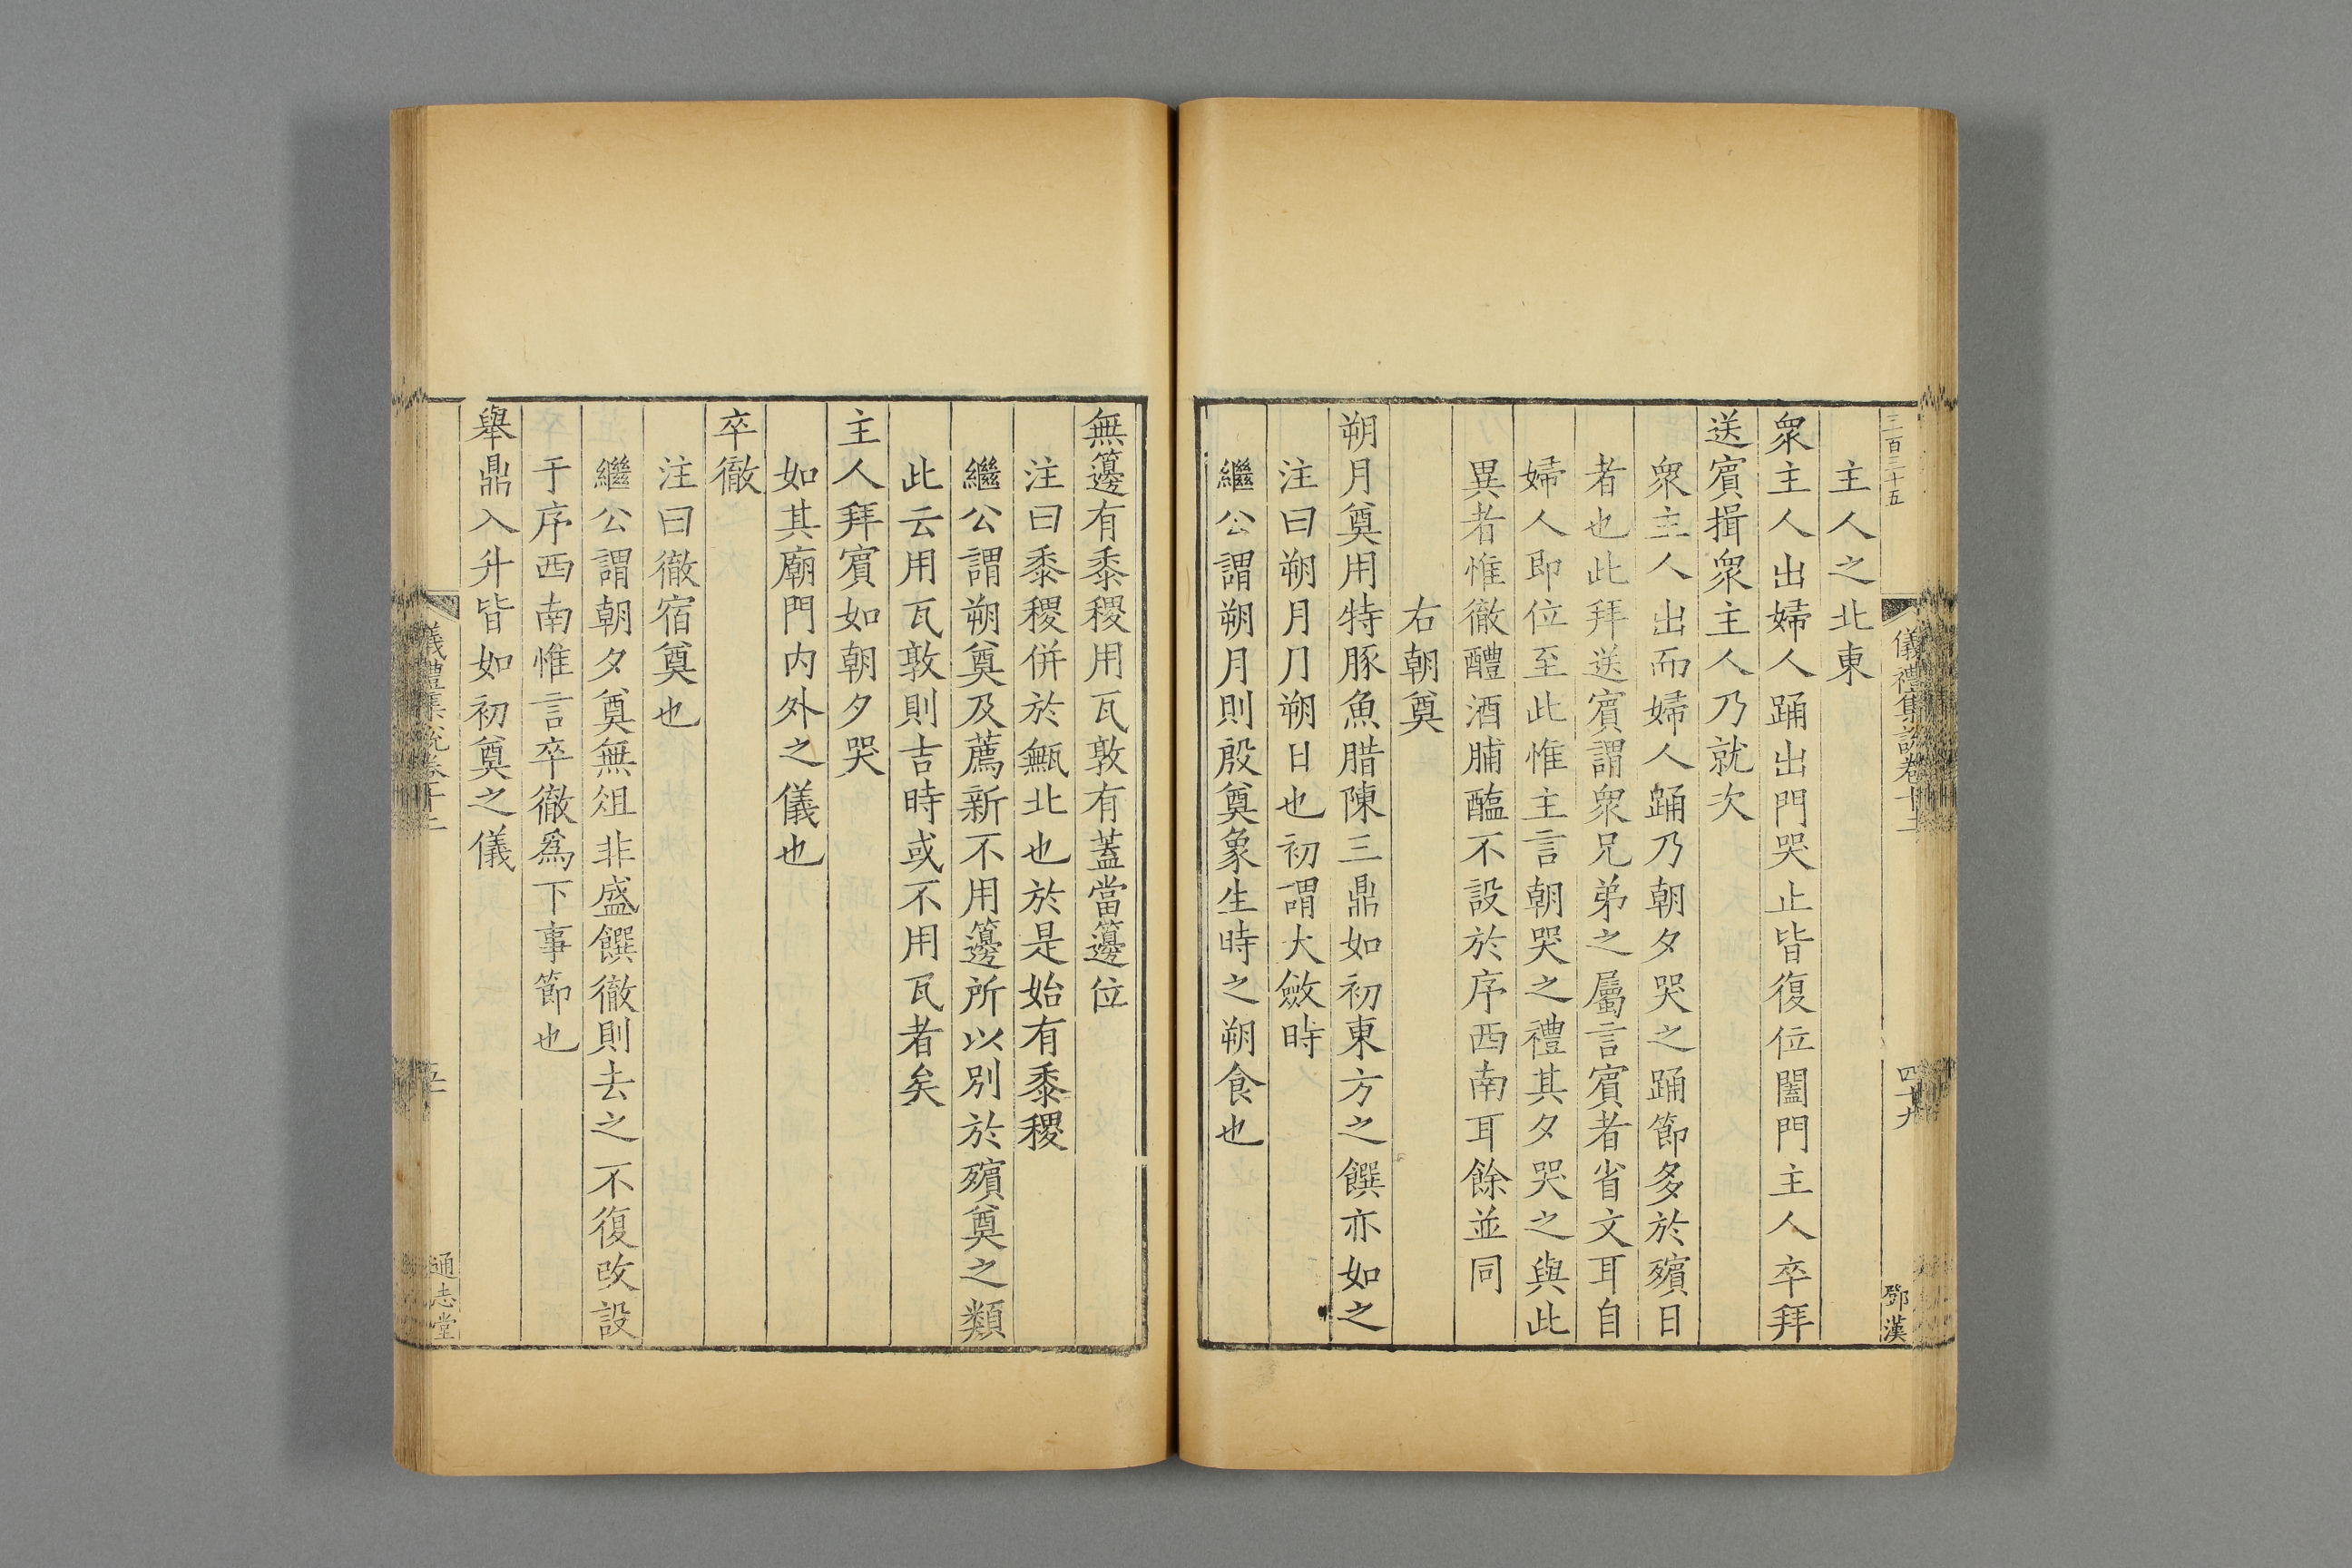 三百三十五
儀禮集說卷十二
四十九
鄧漢
主人之北東
衆主人出婦人踊出門哭止皆復位闔門主人卒拜
送賓揖衆主人乃就次
衆主人出而婦人踊乃朝夕哭之踊節多於殯日
者也此拜送賓謂衆兄弟之屬言賓者省文耳自
婦人即位至此惟主言朝哭之禮其夕哭之與此
異者惟徹醴酒脯醢不設於序西南耳餘並同
右朝奠
朔月奠用特豚魚腊陳三鼎如初東方之饌亦如之
注曰朔月月朔日也初謂大斂時
繼公謂朔月則殷奠象生時之朔食也
無籩有黍稷用瓦敦有蓋當籩位
注曰黍稷併於甒北也於是始有黍稷
繼公謂朔奠及薦新不用籩所以別於殯奠之類
此云用瓦敦則吉時或不用瓦者矣
主人拜賓如朝夕哭
如其廟門内外之儀也
卒徹
注曰徹宿奠也
繼公謂朝夕奠無俎非盛饌徹則去之不復改設
于序西南惟言卒徹爲下事節也
舉鼎入升皆如初奠之儀
儀禮集說卷十二
通志堂